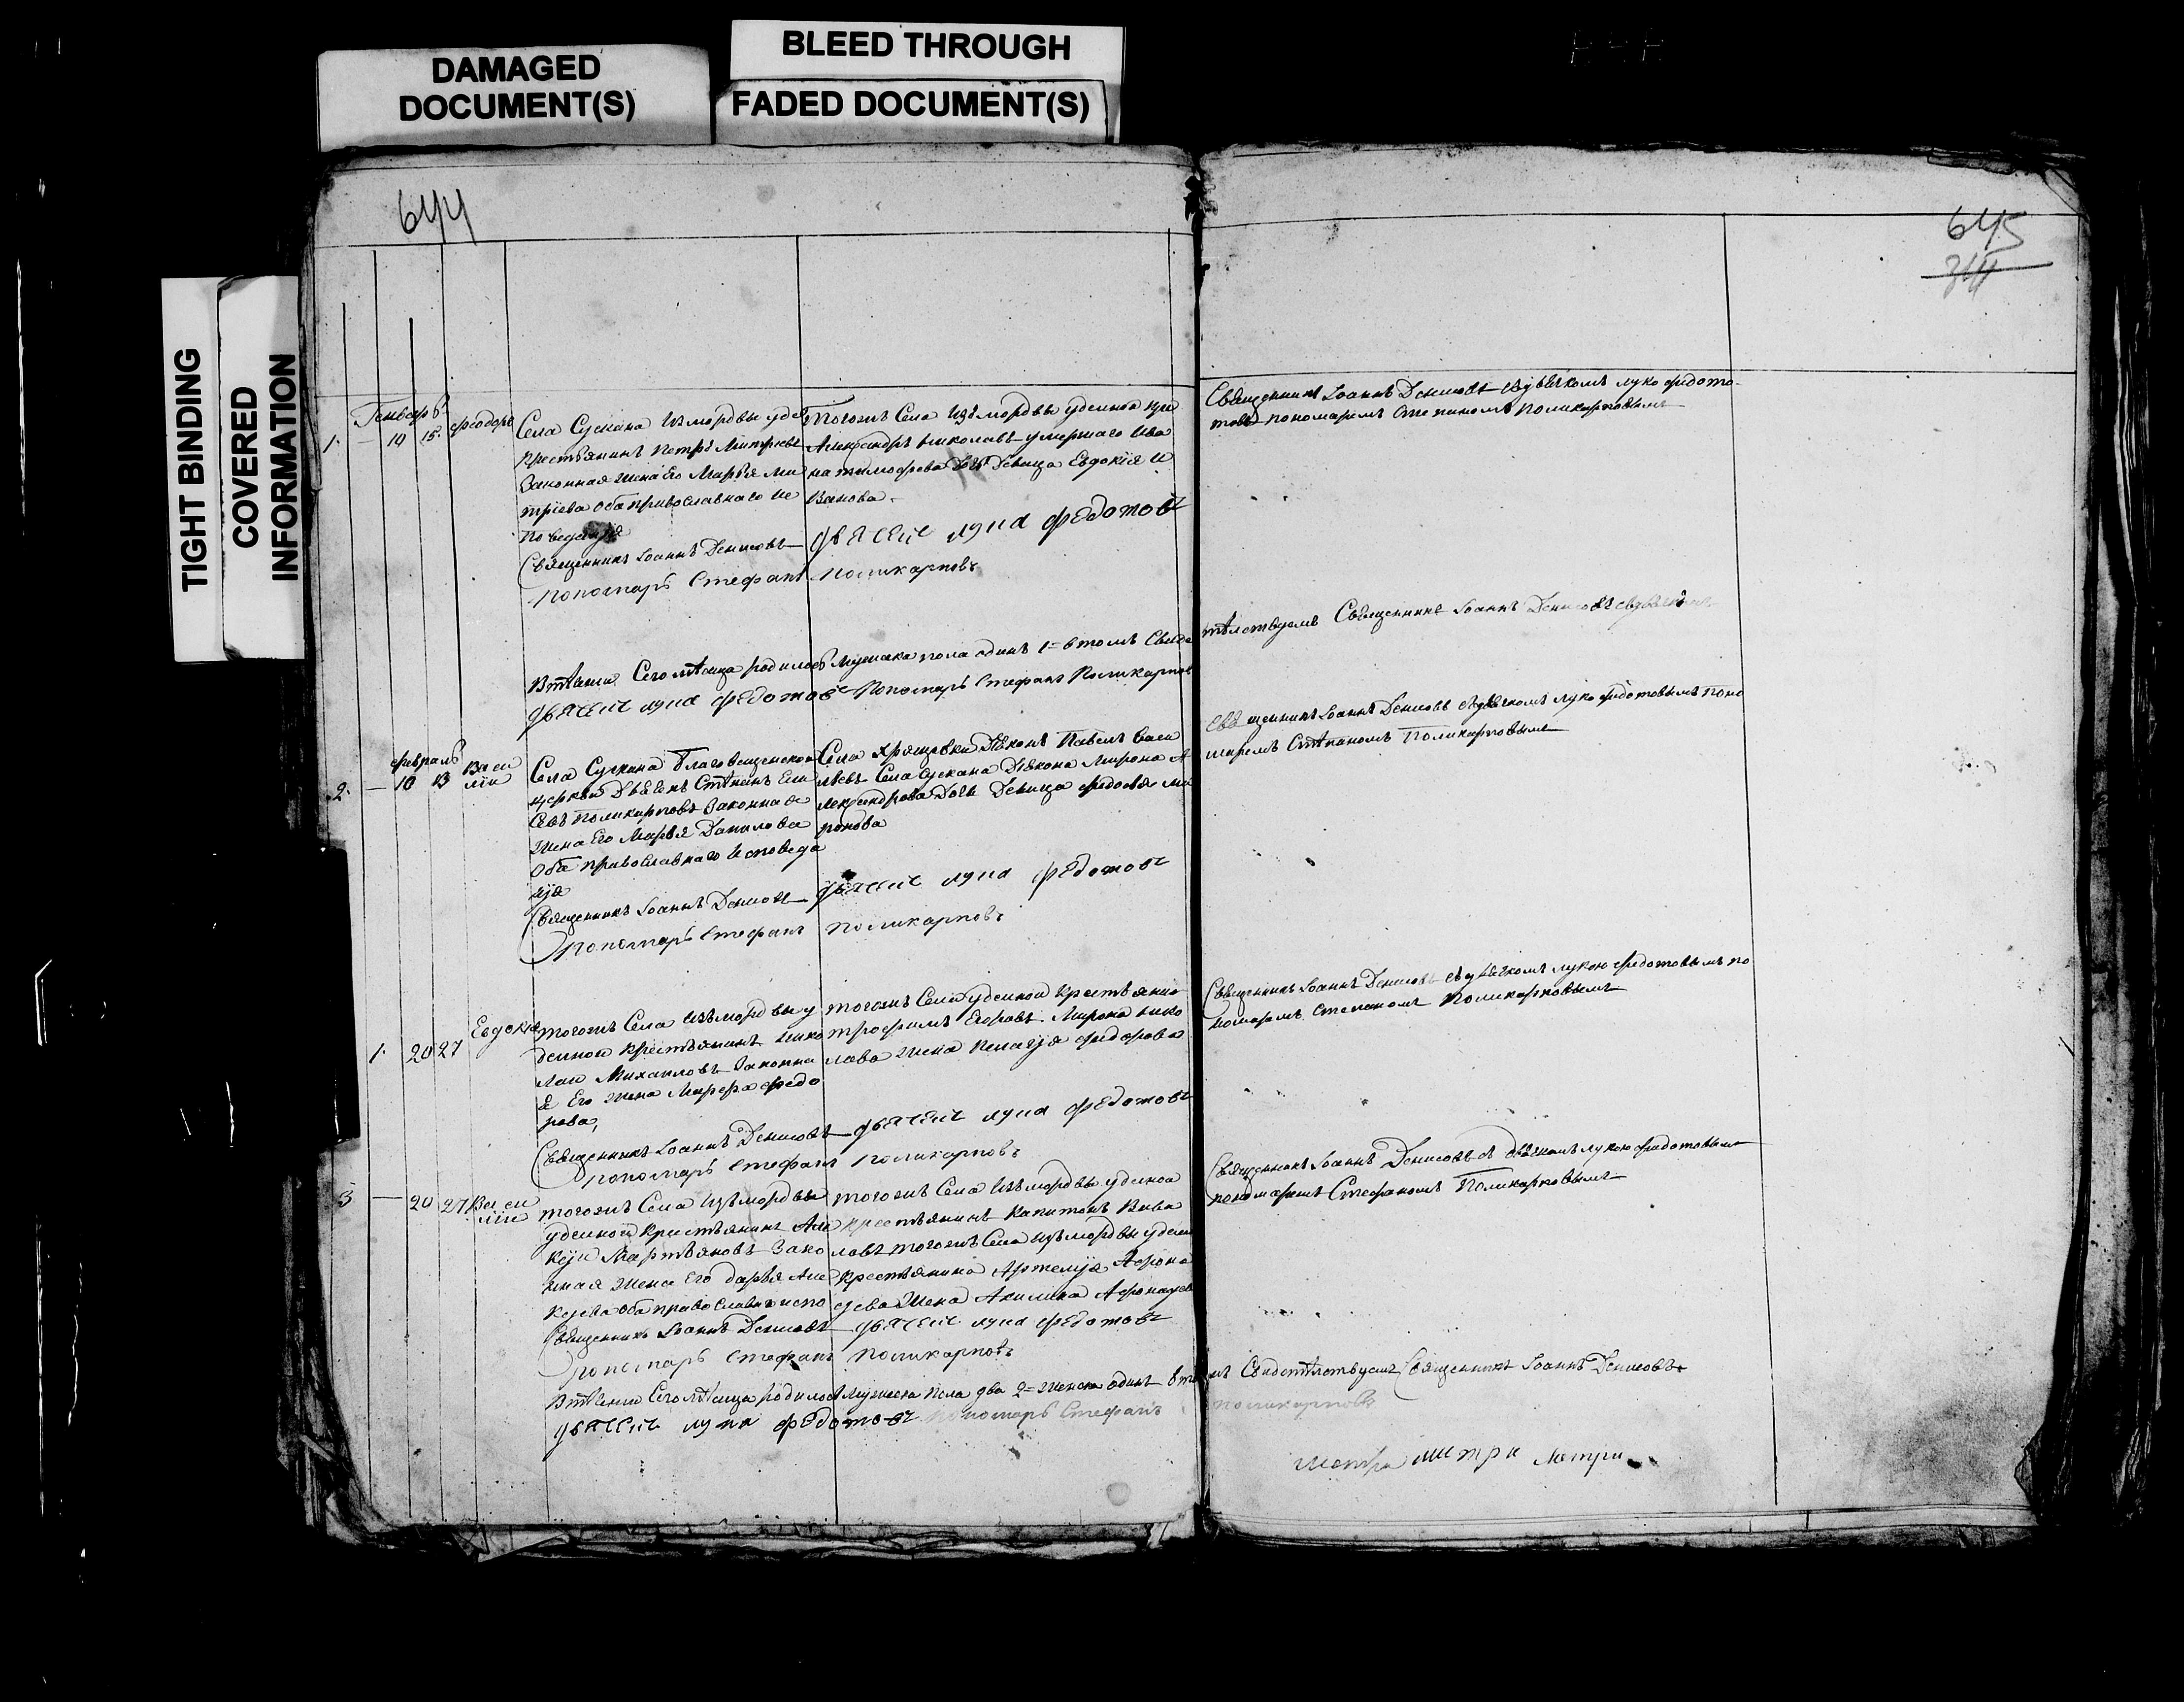 DAMAGED
DOCUMENT(S)
BLEED THROUGH
FADED DOCUMENT(S)
TIGHT BINDING
COVERED
INFORMATION
644
645
Генварь
1. — 10 15. Феодоръ
Села Сускана Изъ мордвы уде
крестьянинъ Петръ Дмитріевъ
Законная жена Его Марья Ми
тріева Оба православнаго Ис
поведанія
Священникъ Іоаннъ Денисовъ
Пономарь Стефанъ Поликарповъ
Тогожъ Села Изъ мордвы удельной кре
Александръ Николаевъ умершаго Ива
на тимофеева Дочь Девица Евдокія И
ванова
дьячекъ лука федотовъ
Священникъ Іоаннъ Денисовъ съ дьячкомъ луко федото
пономаремъ Степаномъ Поликарповымъ
Втѣченіи Сего мѣсяца родилось Мужеска пола одинъ 1 = втомъ Свиде
тѣлствуемъ Священникъ Іоаннъ Денисовъ
дьячекъ лука федотовъ Пономарь Стефанъ Поликарповъ
февраль
2. — 10 13 Васи
лій
Села Сускана Благовещенской
церкви Дьячекъ Стѣпанъ
Поликарповъ Законна я
жена Его Марья Данилова
Оба православнаго Исповеда
нія
Священникъ Іоаннъ Денисовъ
Пономарь Стефанъ Поликарповъ
Села Хрящевки Дьяконъ Павелъ Васи
льевъ Села Сускана Дьякона Мирона А
лександрова Дочь Девица Федосья Ми
ронова
дьячекъ лука федотовъ
Священникъ Іоаннъ Денисовъ съ дьячкомъ луко федотовымъ поно
маремъ Стѣпаномъ Поликарповымъ
1. 20 27 Евдокія
тогожъ Села Изъ мордвы у
дельной крестьянинъ Нико
лай Михаиловъ Законна
я Его жена Марфа федо
рова,
Священникъ Іоаннъ Денисовъ
пономарь Стефанъ поликарповъ
тогожъ Села удельной крестьянин
трофимъ Егоровъ Мирона Нико
лава жена Пелагѣя федорова
дьячекъ лука федотовъ
Священникъ Іоаннъ Денисовъ съ дьячкомъ лукою федотовымъ по
номаремъ Степаномъ Поликарповымъ
3 — 20 27 Васи
лій
тогожъ Села изъ мордвы
удельной крестьянинъ Але
ксѣй Мартьяновъ Зако
нная жена Его дарья Але
ксѣева оба православна испо
Священникъ Іоаннъ Денисовъ
Пономарь Стефанъ Поликарповъ
тогожъ Села Изъ мордвы удельной
крестьянинъ Капитонъ
тогожъ Села изъ мордвы удельн
крестьянина Артемія Афона
сева Жена Акилина
дьячекъ лука федотовъ
Священникъ Іоаннъ Денисовъ съ дьячкомъ лукою федотовымъ
пономаремъ Стефаномъ Поликарповымъ
Втѣченіи Сего мѣсяца родилось Мужеска пола два 2 = женска одинъ втомъ Свидетѣлствуемъ Священникъ Іоаннъ Денисовъ
дьячекъ лука федотовъ пономарь Стефанъ поликарповъ